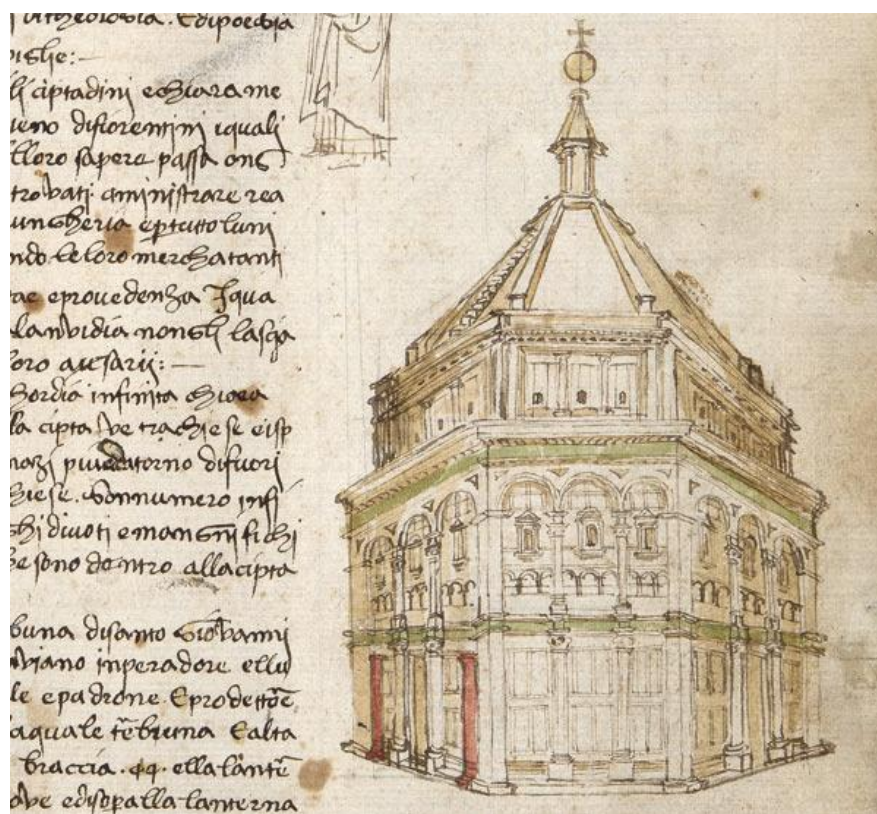 theologia. Edipoesia
viglie:—
li ciptadini echiarame
difiorentini iquali
lloro sapere passa ons
trovati aministrare rea
ungheria eptutto luni
ndo leloro merchatanti
tae eprovedenza Iqua
lanvidia nongli lascia
loro avesarij:—
hordia infinita chiova
la cipta ve trachiese eisp
datorno difuori
hiese. Sonnumero infi
ghi divoti emangnifichi
he sono dentro allacipta
buna disanto Giovanni
viano inperadore ellu
le epadrone. Eprodettoē
aquale tēbruna Ealta
braccia .44. ellalantē
ove edisopallalanterna